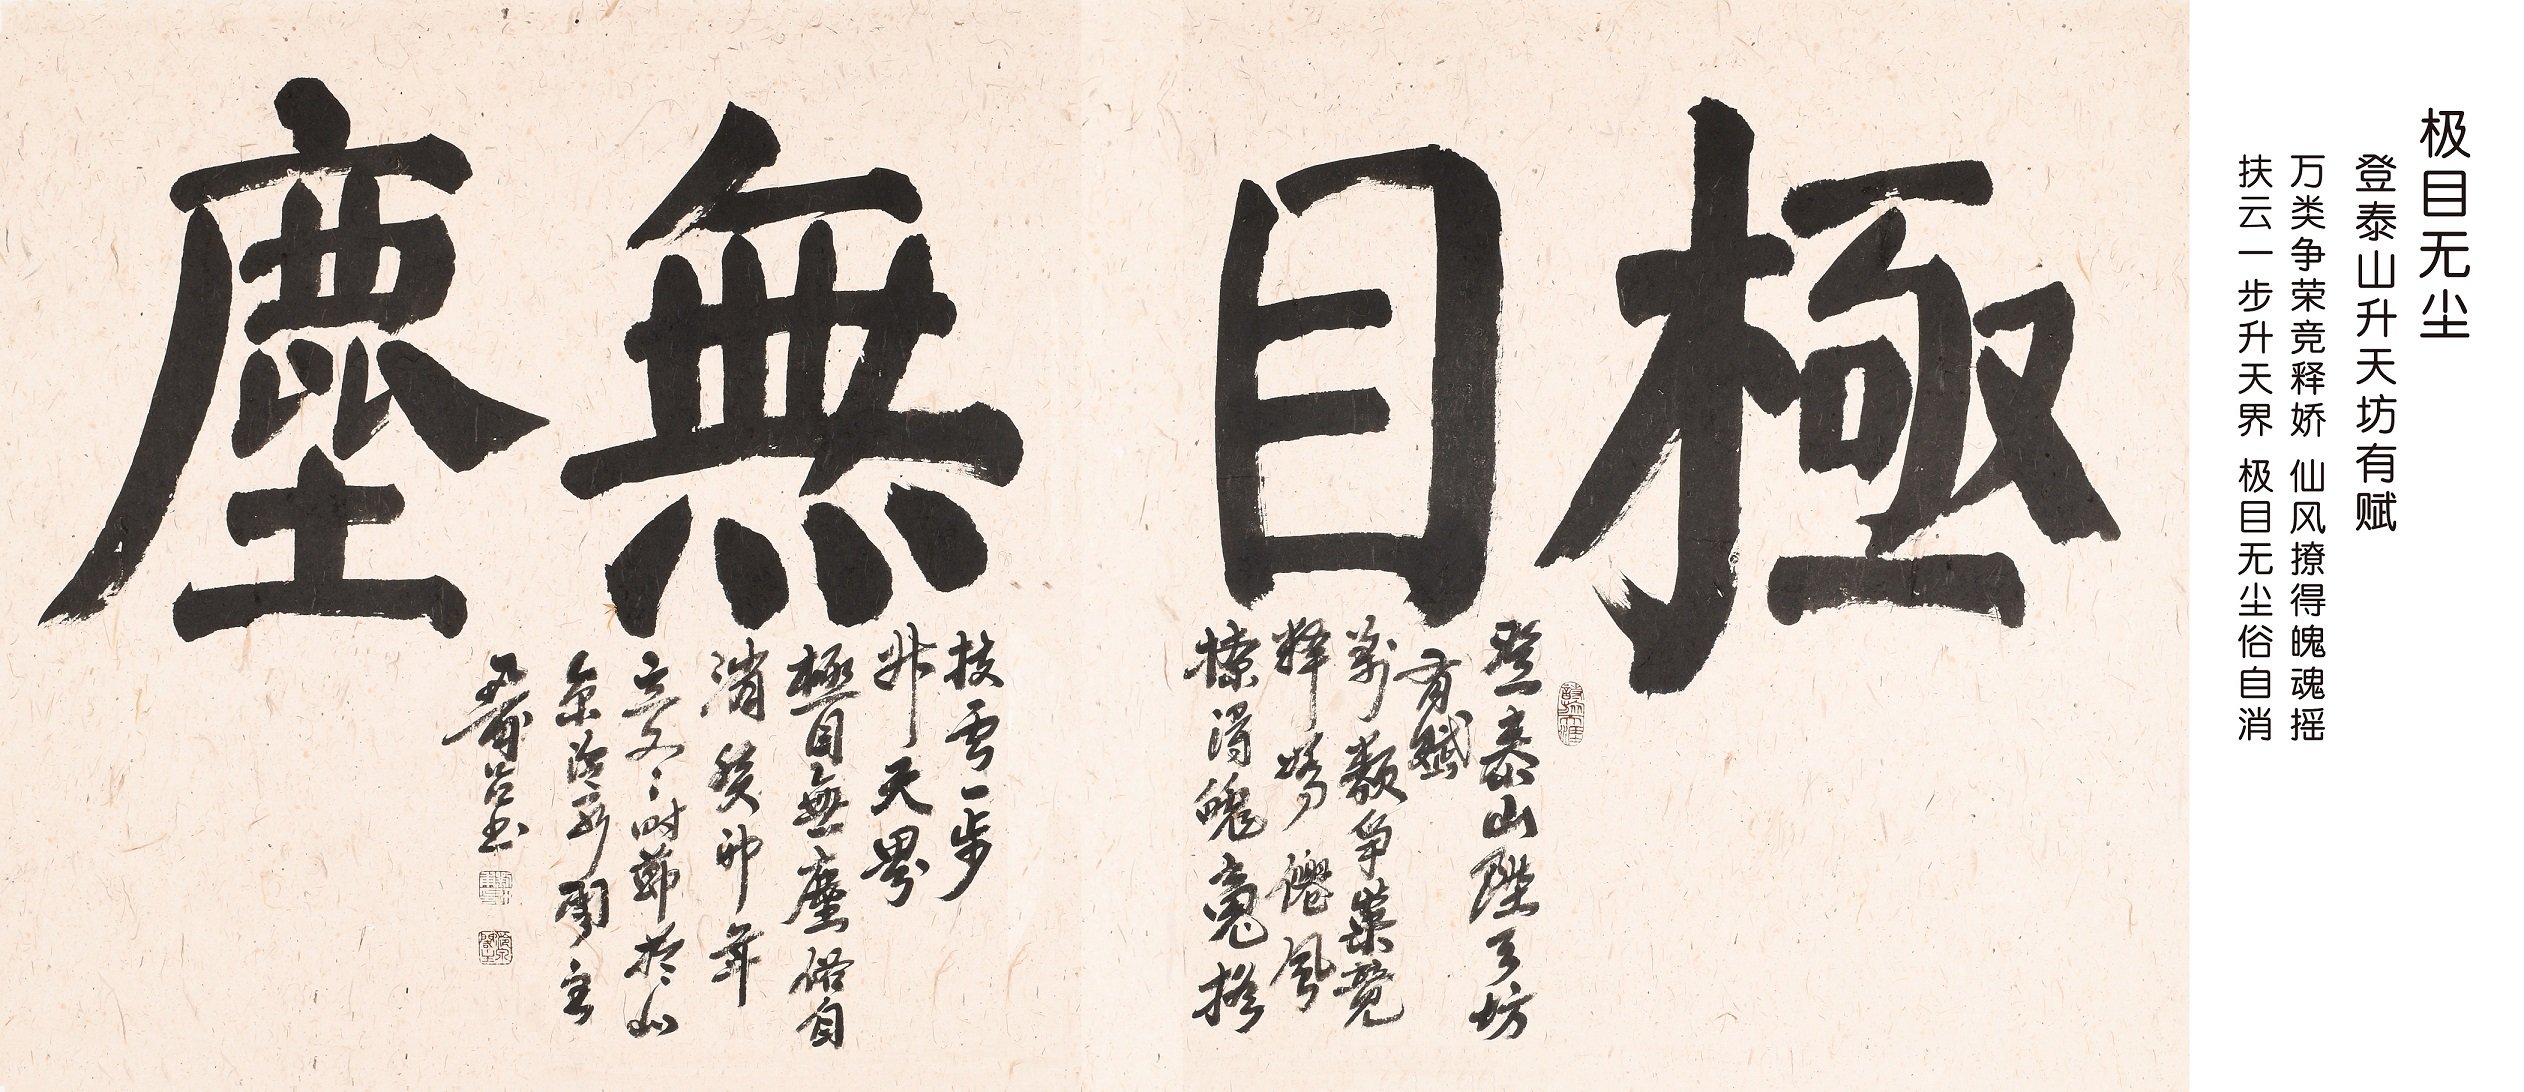 极目无尘
登泰山升天坊有赋
万类争荣竞释娇 仙风撩得魄魂摇
扶云一步升天界 极目无尘俗自消
極目無塵
登泰山陞天坊
有赋
萬類争榮競
釋嬌僊風
撩得魄魂摇
扶雲一步
升天界
極目無塵俗自
消癸卯年
立夏時節於山